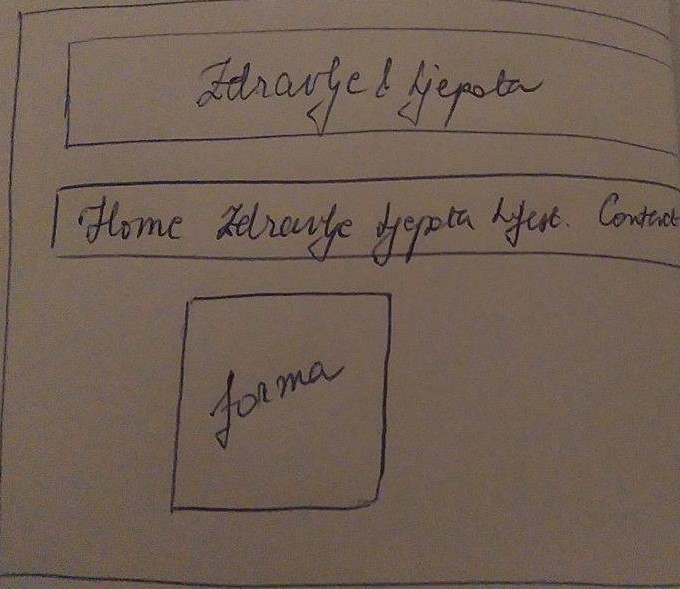 Zdravlje & Ljepota
Home Zdravlje Ljepota Lifest. Contact
forma